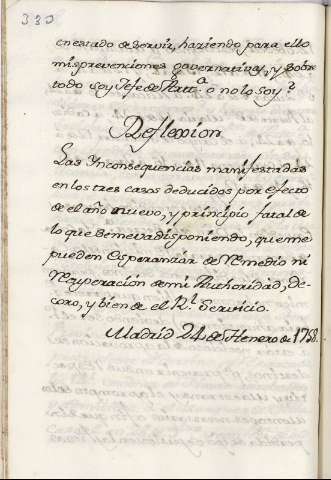 330
en estado de servir, haciendo para ello
mis prevenciones governativas, y sobre
todo soy Jefe de Artt.ª o no lo soy?
Reflexion
Las Ynconsequencias manifestadas
en los tres casos deducidos por efecto
de el año nuevo, y principio fatal de
lo que se me va disponiendo, que me
pueden esperanzar de Remedio ni
Recuperacion de mi Authoridad, de-
coro, y bien de el R.l Servicio.
Madrid 24 de Henero de 1758.